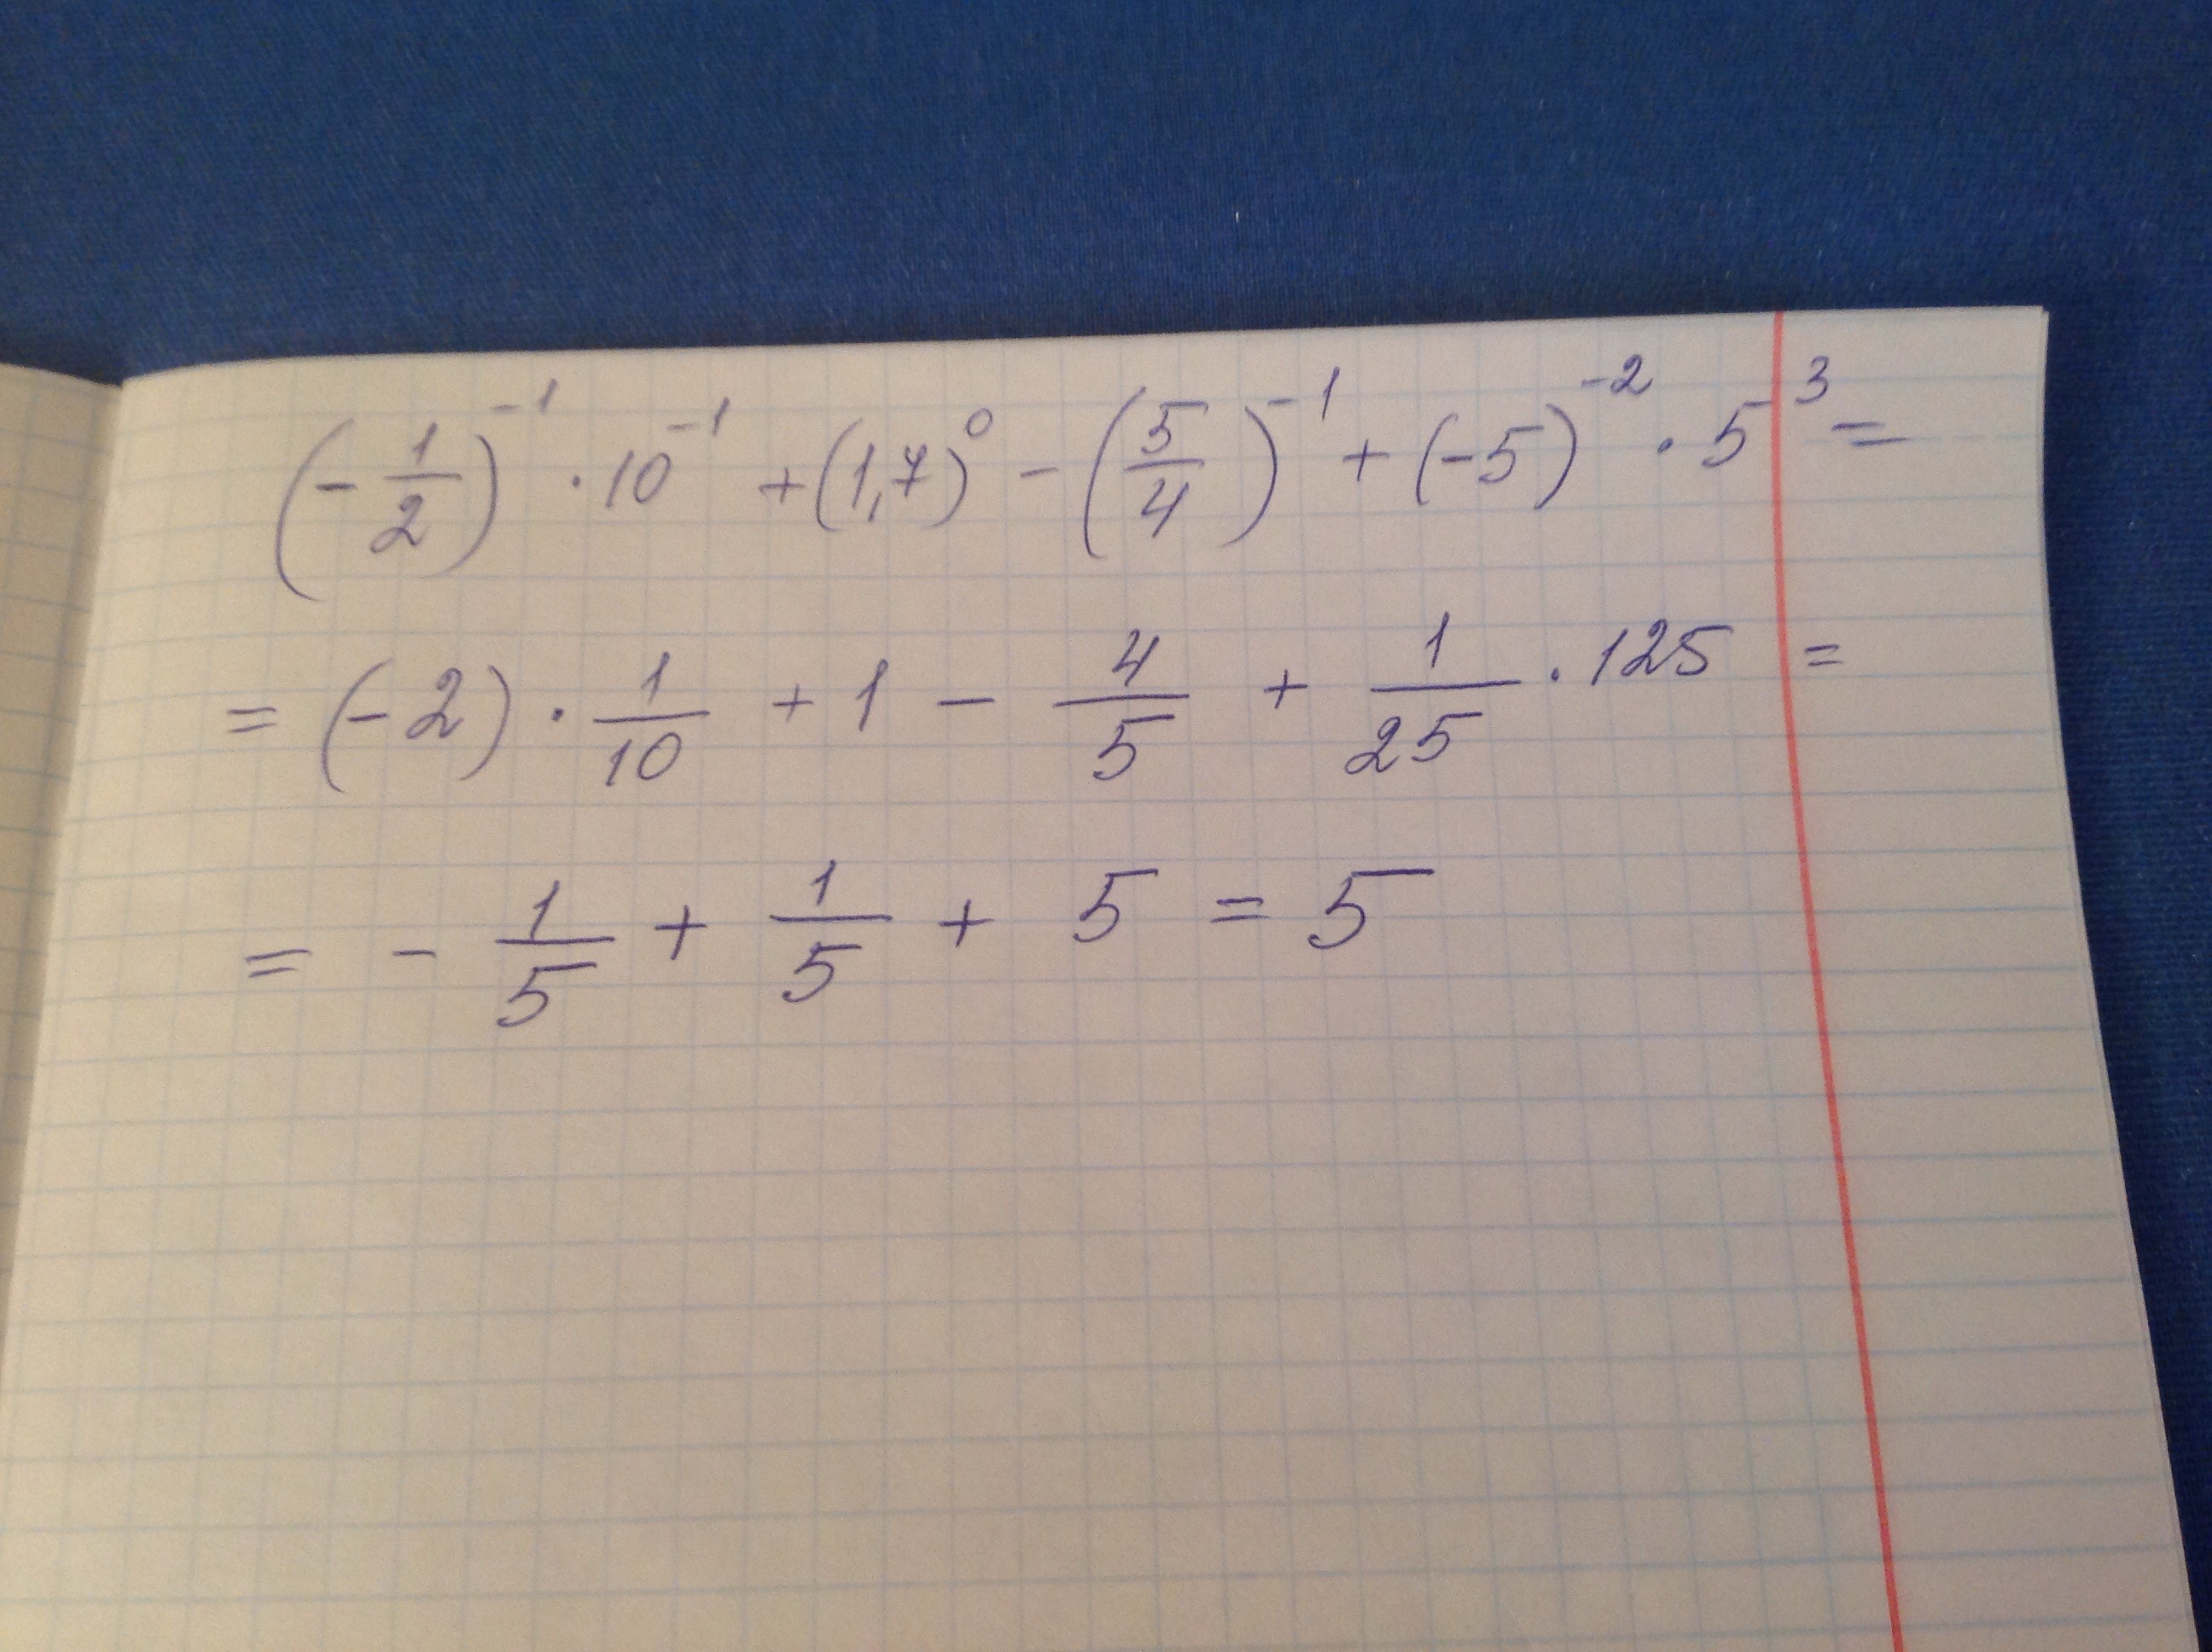 (-1/2)^-1 · 10^-1 + (1,7)^0 - (5/4)^-1 + (-5)^-2 · 5^3 =
= (-2) · 1/10 + 1 - 4/5 + 1/25 · 125 =
= - 1/5 + 1/5 + 5 = 5